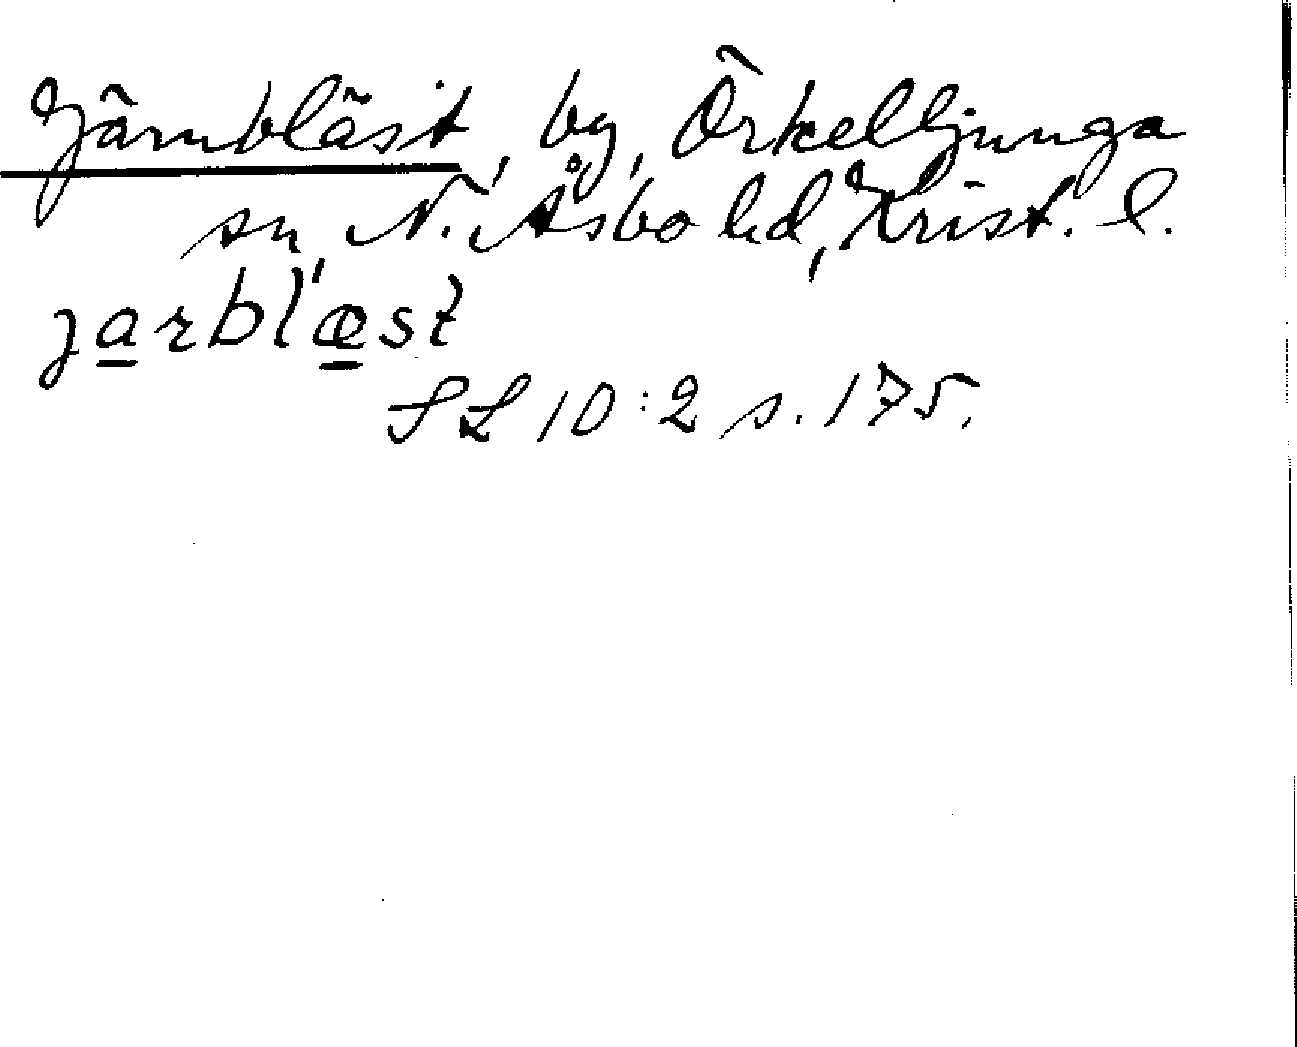 Järnbläst, by, Örkelljunga
sn, N. Åsbo hd, Krist. l.
ja̲rbl'æ̲st
SL 10:2 s. 175.